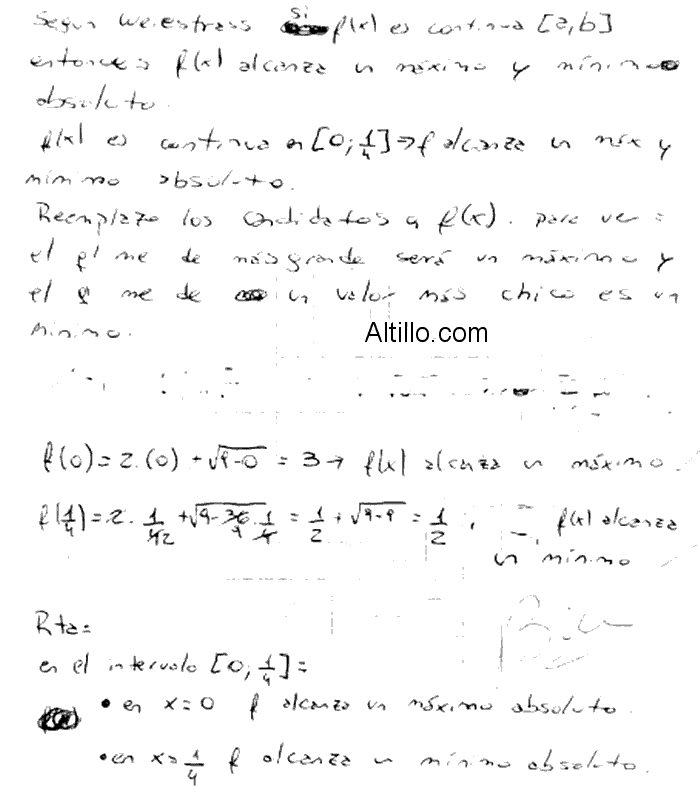 Segun Weiestrass si f(x) es continua [a,b]
entonces f(x) alcanza un máximo y mínimo
absoluto.
f(x) es continua en [0; 1/4] ⇒ f alcanza un máx y
mínimo absoluto.
Reemplazo los candidatos a f(x). para ver =
el q' me de más grande será un máximo y
el q me de un valor más chico es un
mínimo.
Altillo.com
f(0) = 2.(0) + √9-0 = 3 → f(x) alcanza un máximo.
f(1/4) = 2. 1/42 + √9-36. 1/4 = 1/2 + √9-9 = 1/2, f(x) alcanza
un mínimo
Rta=
en el intervalo [0; 1/4] =
• en x=0 f alcanza un máximo absoluto.
• en x= 1/4 f alcanza un mínimo absoluto.